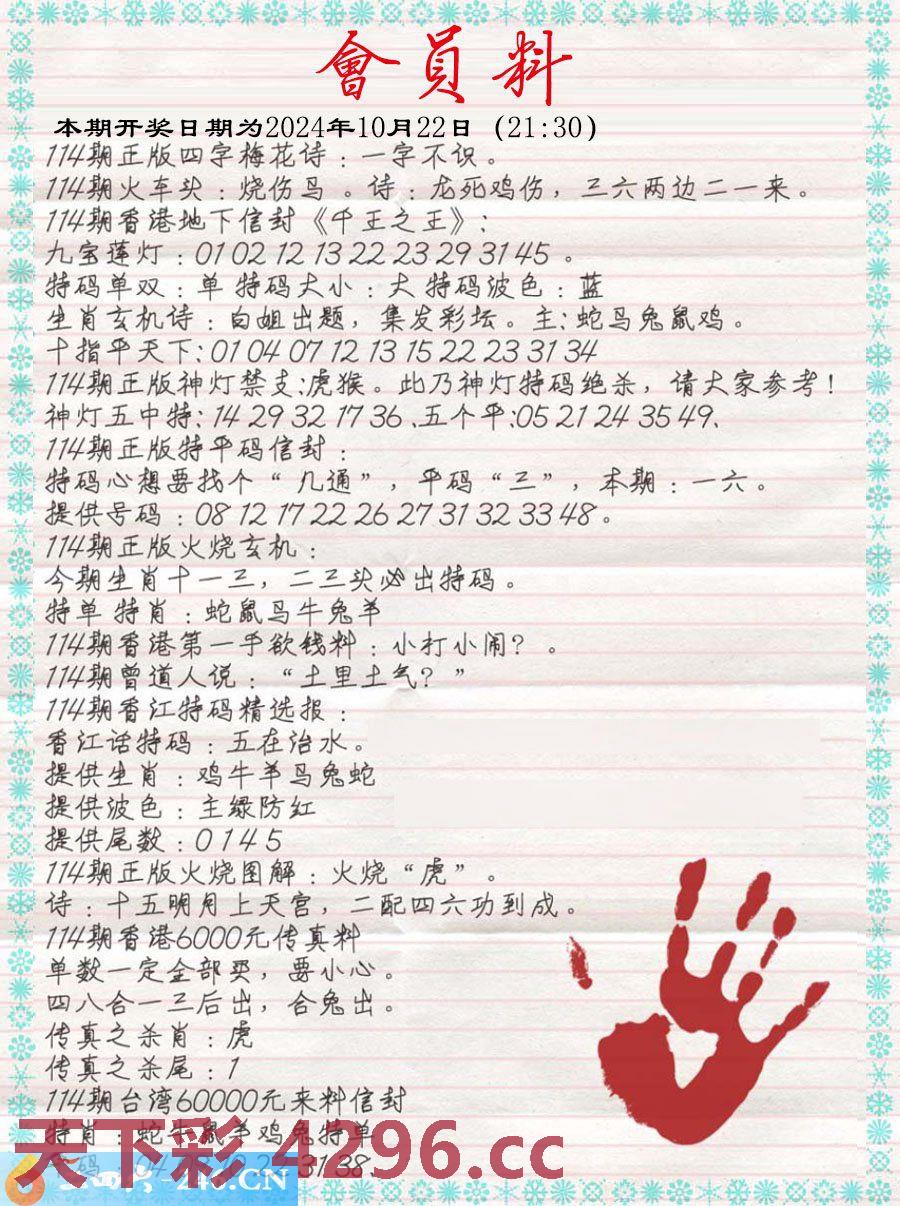 會員料
本期开奖日期为2024年10月22日（21:30）
114期正版四字梅花诗：一字不识。
114期火车头：烧伤鸟 。诗：龙死鸡伤，三六两边二一来。
114期香港地下信封《千王之王》：
九宝莲灯：01 02 12 13 22 23 29 31 45 。
特码单双：单 特码大小：大 特码波色：蓝
生肖玄机诗：白姐出题，集发彩坛。主：蛇马兔鼠鸡。
十指平天下：01 04 07 12 13 15 22 23 31 34
114期正版神灯禁支：虎猴。此乃神灯特码绝杀，请大家参考！
神灯五中特：14 29 32 17 36 .五个平：05 21 24 35 49.
114期正版特平码信封：
特码心想要找个“几通”，平码“三”，本期：一六。
提供号码：08 12 17 22 26 27 31 32 33 48。
114期正版火烧玄机：
今期生肖十一三，二三头必出特码。
特单 特肖：蛇鼠马牛兔羊
114期香港第一手欲钱料：小打小闹？。
114期曾道人说：“土里土气？”
114期香江特码精选报：
香江话特码：五在治水。
提供生肖：鸡牛羊马兔蛇
提供波色：主绿防红
提供尾数：0 1 4 5
114期正版火烧图解：火烧“虎”。
诗：十五明月上天宫，二配四六功到成。
114期香港6000元传真料
单数一定全部买，要小心。
四八合一三后出，合兔出。
传真之杀肖：虎
传真之杀尾：1
114期台湾60000元来料信封
特肖：蛇牛鼠羊鸡兔特单
31 38.
天下彩.4296.cc
-246.CN